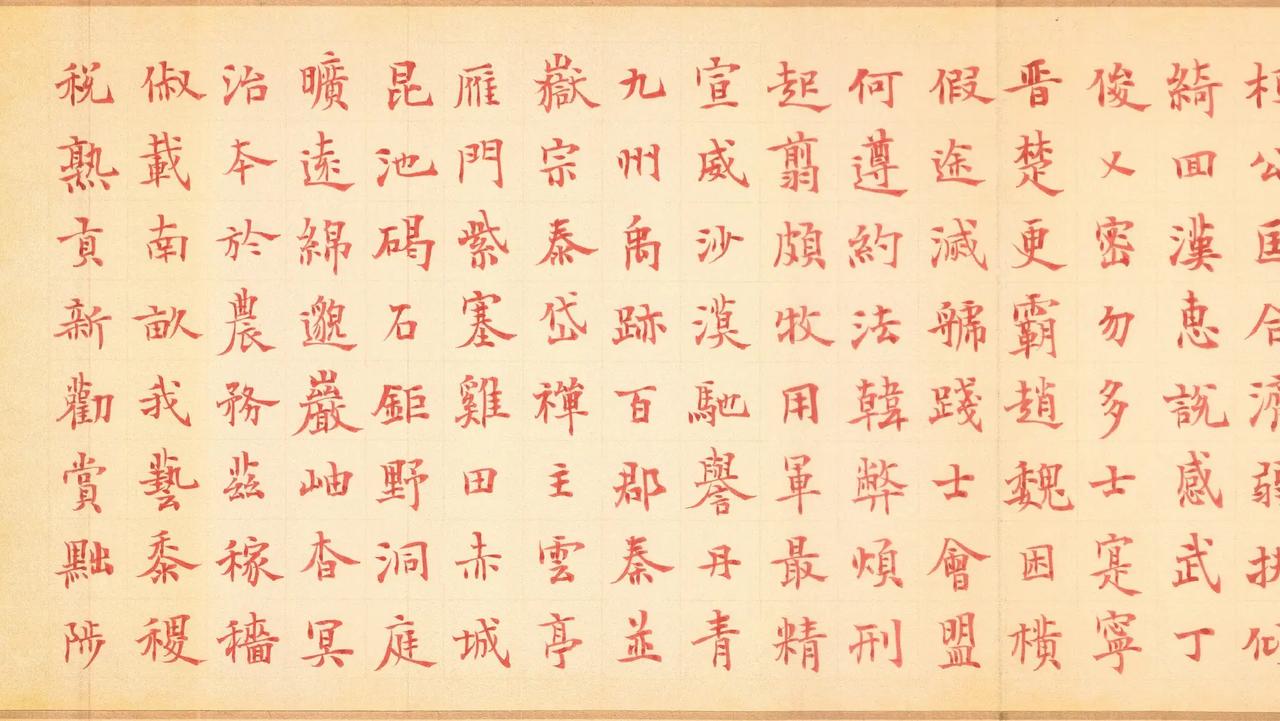 綺囬漢恵說感武丁
俊乂密勿多士寔寧
晋楚更霸趙魏困橫
假途滅虢踐士會盟
何遵約法韓弊煩刑
起翦頗牧用軍最精
宣威沙漠馳譽丹青
九州禹跡百郡秦並
嶽宗泰岱禪主雲亭
雁門紫塞雞田赤城
昆池碣石鉅野洞庭
曠遠綿邈巖岫杳冥
治本於農務茲稼穡
俶載南畝我藝黍稷
稅熟貢新勸賞黜陟